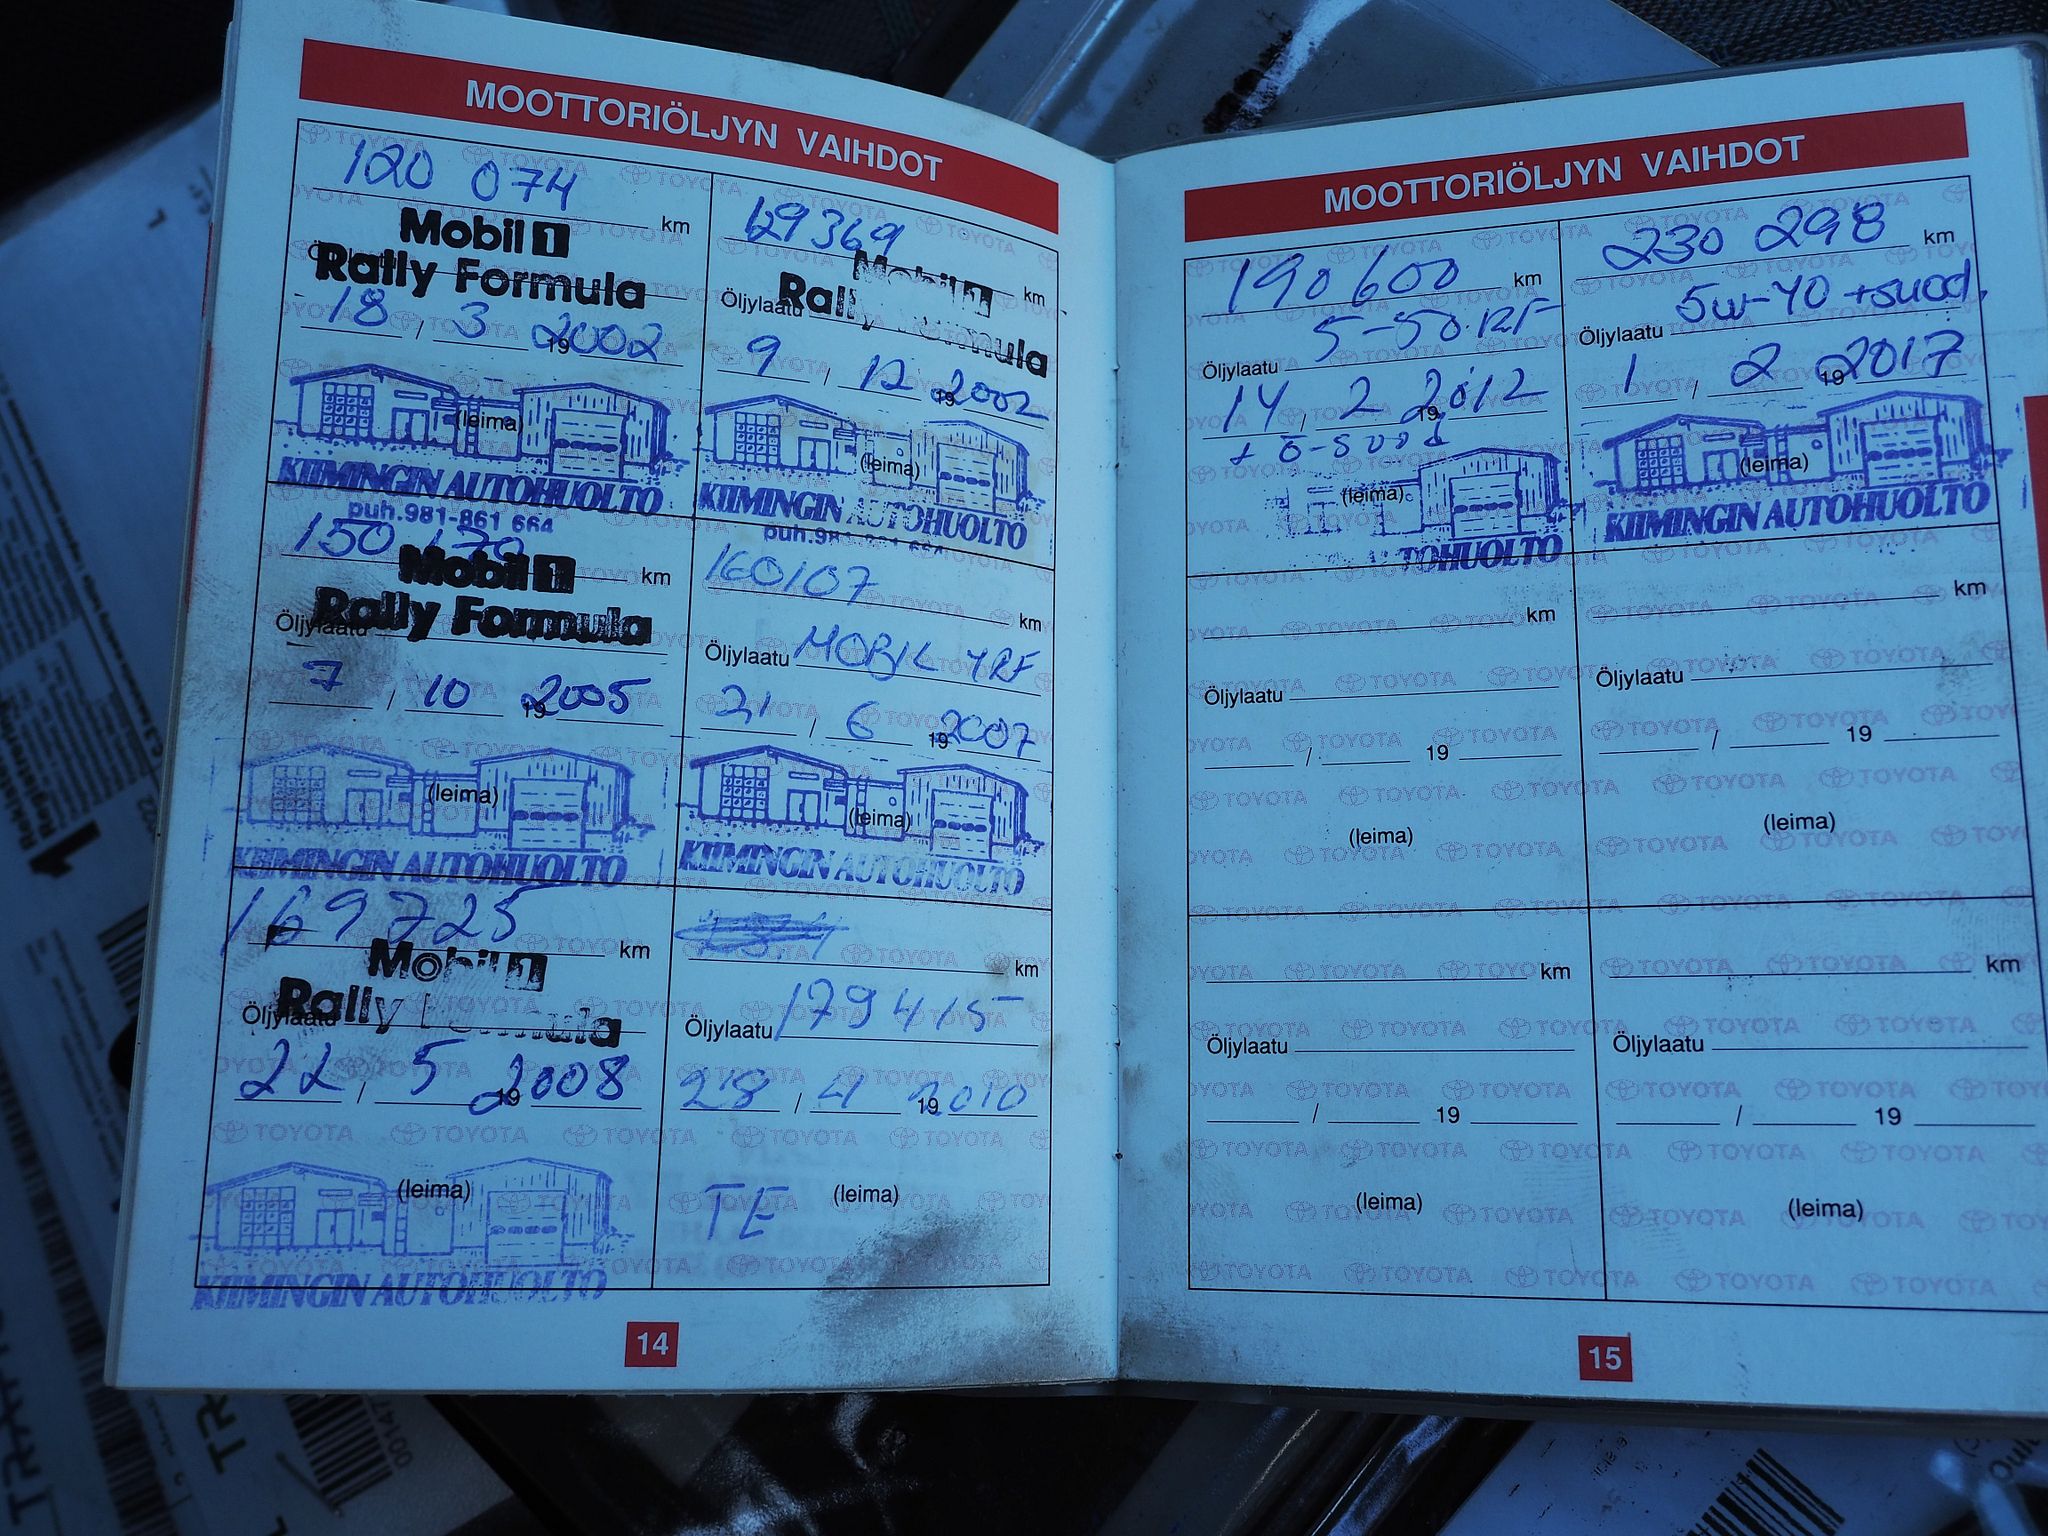 MOOTTORIÖLJYN VAIHDOT
120 074 km
Mobil 1
Rally Formula
18 , 3 19 2002
(leima)
KIIMINGIN AUTOHUOLTO
puh.981-861 664
129369 km
Mobil 1
Öljylaatu Rally Formula
9 , 12 19 2002
(leima)
KIIMINGIN AUTOHUOLTO
150 170 km
Mobil 1
Öljylaatu Rally Formula
7 / 10 19 2005
(leima)
KIIMINGIN AUTOHUOLTO
160107 km
Öljylaatu MOBIL 1RF
21 / 6 19 2007
(leima)
KIIMINGIN AUTOHUOLTO
169725 km
Mobil 1
Öljylaatu Rally Formula
22 / 5 19 2008
(leima)
KIIMINGIN AUTOHUOLTO
km
Öljylaatu 179415
28 / 4 19 2010
TE (leima)
14
MOOTTORIÖLJYN VAIHDOT
190 600 km
Öljylaatu 5-50 RF
14 , 2 19 2012
(leima)
TOHUOLTO
230 298 km
Öljylaatu 5w-40 +suod.
1 , 2 19 2017
(leima)
KIIMINGIN AUTOHUOLTO
km
Öljylaatu
/ 19
(leima)
km
Öljylaatu
/ 19
(leima)
km
Öljylaatu
/ 19
(leima)
km
Öljylaatu
/ 19
(leima)
15